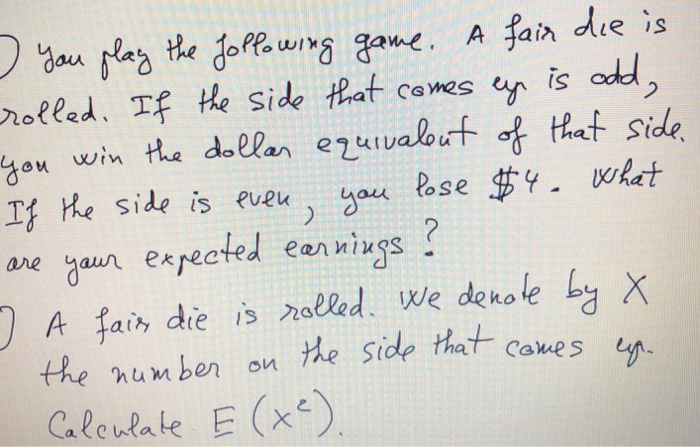 ) You play the following game. A fair die is
rolled. If the side that comes up is odd,
you win the dollar equivalent of that side.
If the side is even, you lose $4. What
are your expected earnings?
) A fair die is rolled. We denote by X
the number on the side that comes up.
Calculate E(X²).